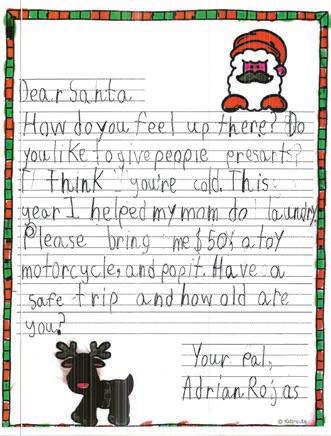 Dear Santa
How do you feel up there? Do
you like to give people presants?
I think you're cold. This
year I helped my mom do laundry
Please bring me $50, a toy
motorcycle, and popit. Have a
safe trip and how old are
you?
Your pal,
Adrian Rojas